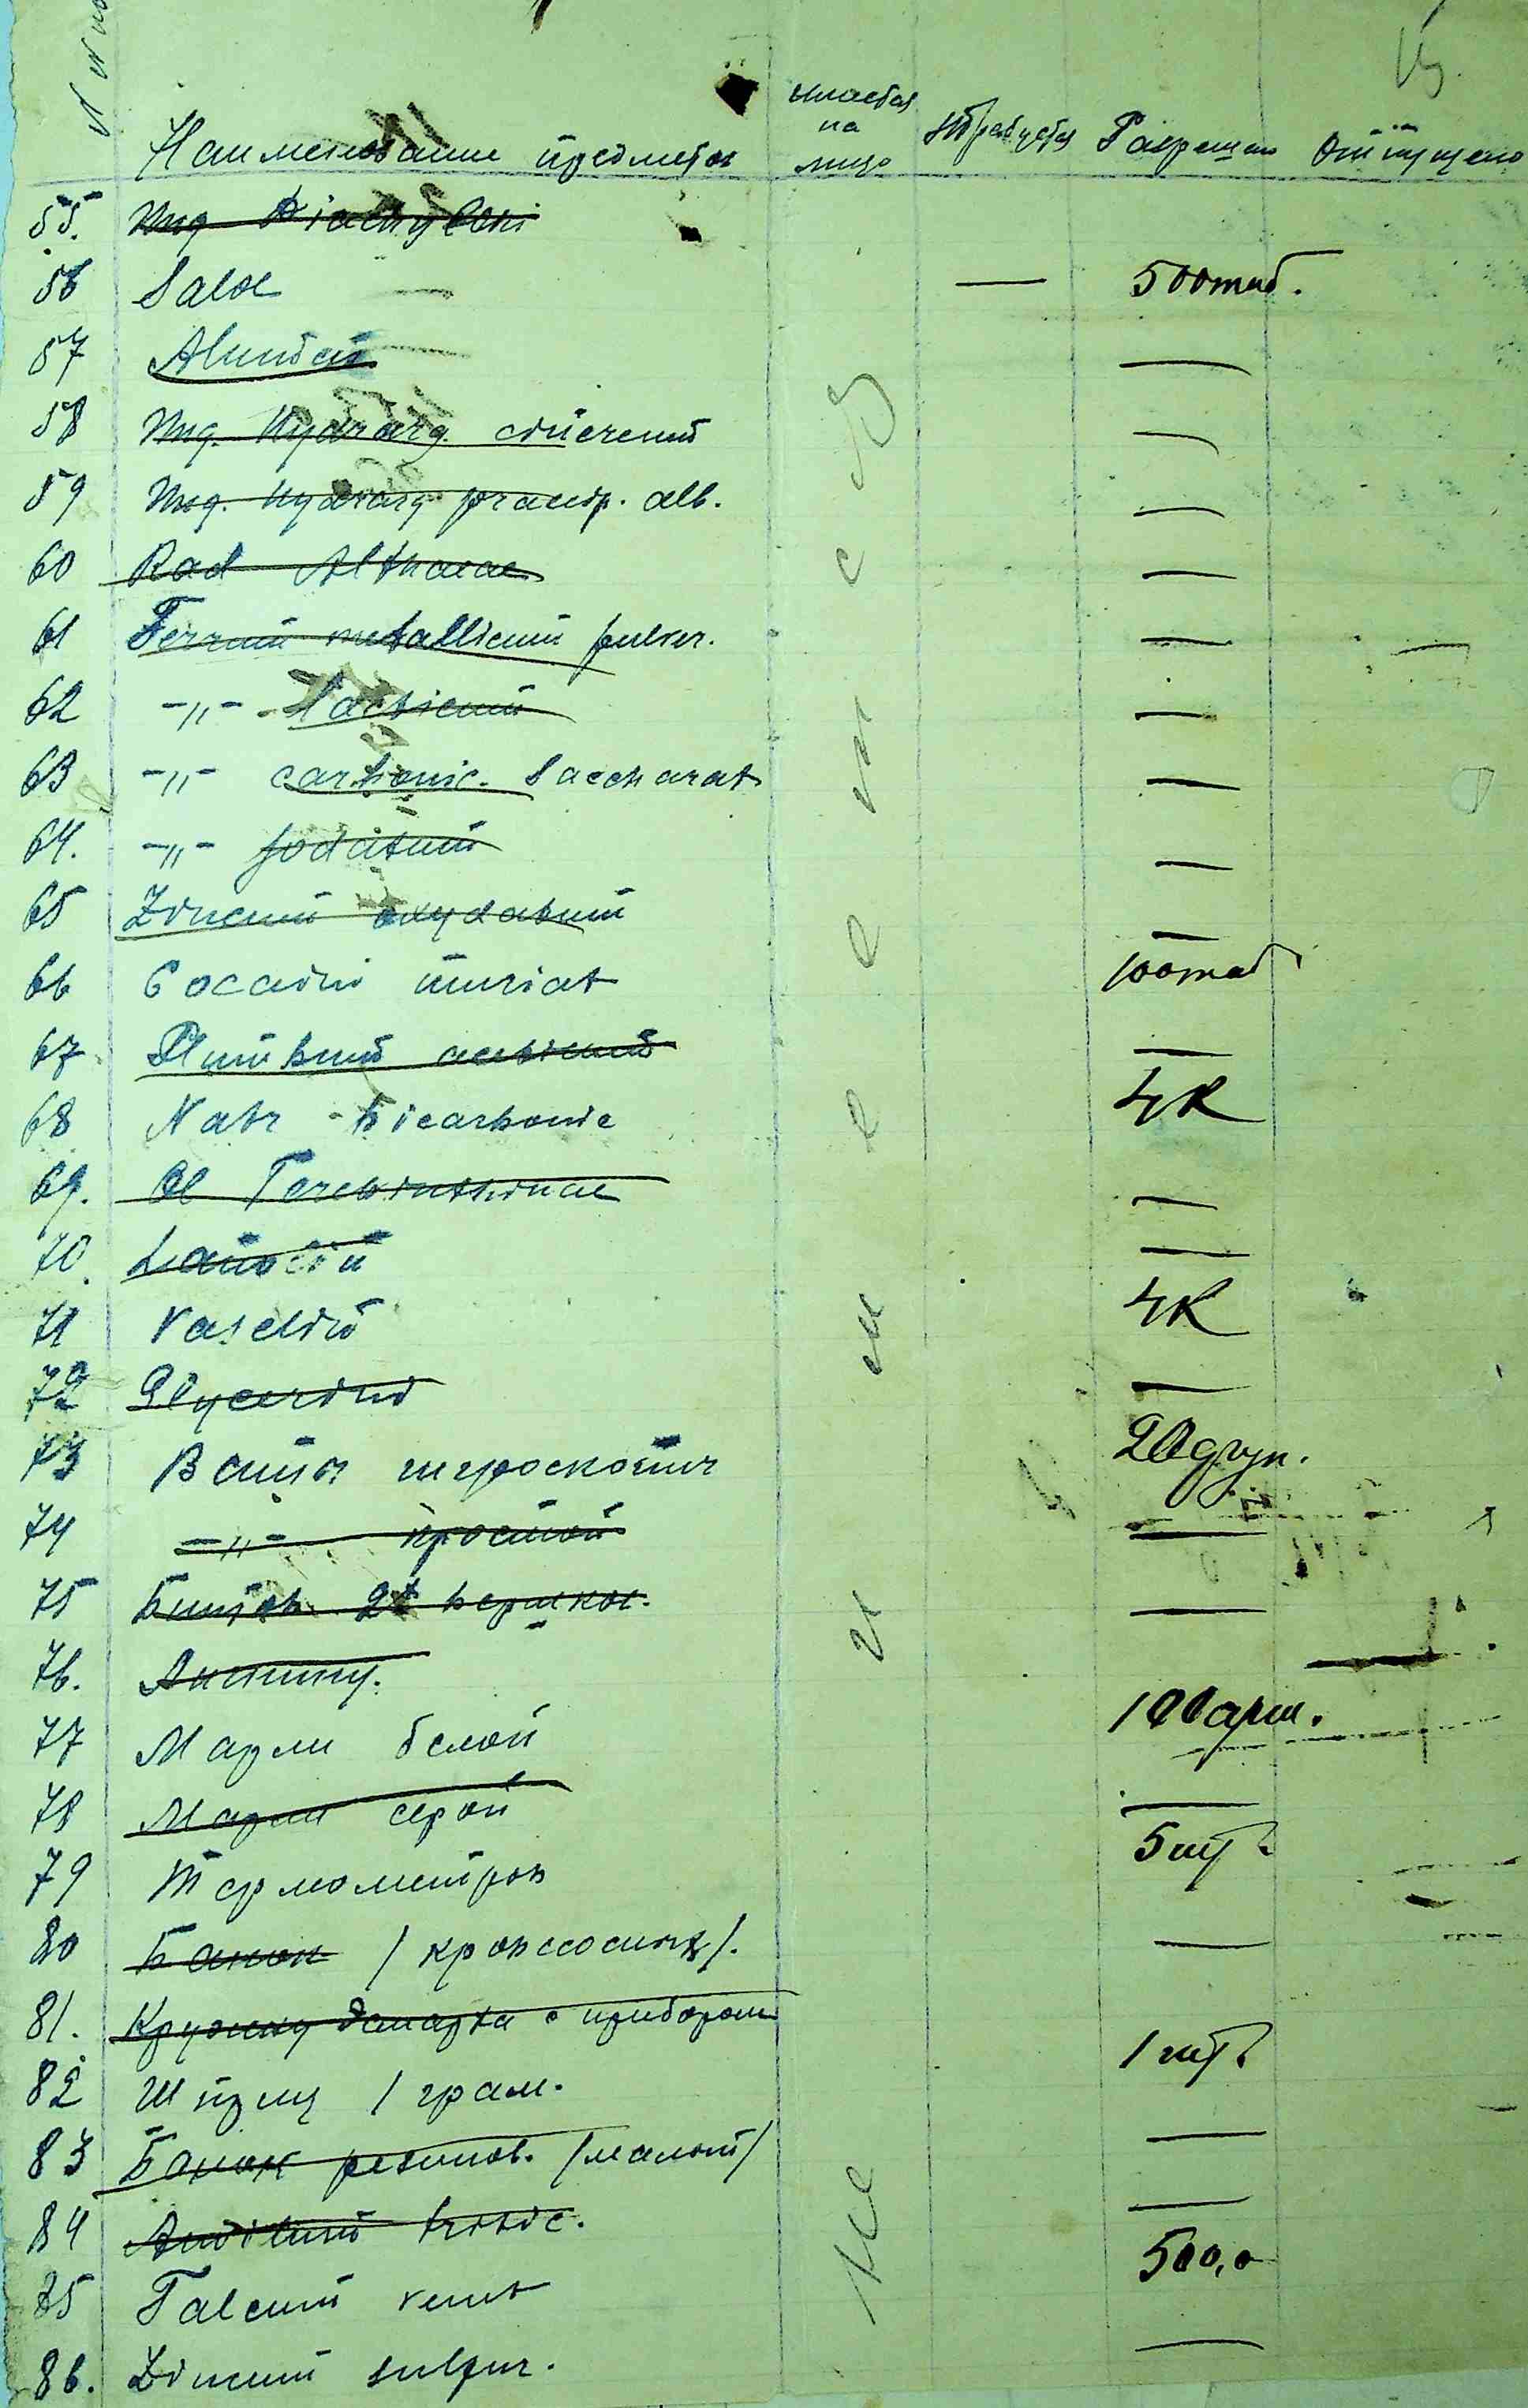 Наименование предметов имеется на лицо требуется Разрешено Отпущено
55. Ung Diachyloni
56 Salol — 500 таб.
57 Alumin —
58 Ung. Hydrarg. cinereum —
59 Ung. Hydrarg. praecip. alb. —
60 Rad Althaeae —
61 Ferrum metallicum pulver. —
62 -„- lacticum —
63 -„- carbonic. Saccharat —
64. -„- jodatum —
65 Zincum oxydatum —
66 Cocaini muriat 100 таб
67 Plumbum aceticum —
68 Natr bicarbonic 4 К
69. Ol Terebinthinae —
70. Lanolin —
71 Vaselin 4 К
72 Glycerini —
73 Ваты гигроскопич 20 фун.
74 -„- простой —
75 Бинтов 2х вершков. —
76.
77 Марли белой 100 арш.
78 Марли серой —
79 Термометров 5 шт.
80 Банок /кровсосных/. —
81. Кружку Эсмарха с прибором
82 Шприц 1 грам. 1 шт.
83 резинов. /малый/ —
84 Amilum tritic. —
85 Talcum venet 500,0
86. Zincum sulfur. —
Не имеется